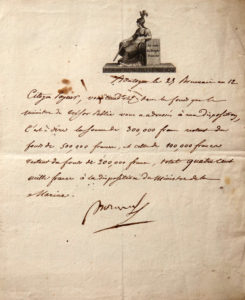 Boulogne le 23 Brumaire an 12
Citoyen Payeur, vous dans le fonds que le
Ministre du Trésor Public vous a à ma disposition,
C'est à dire la somme de 300,000 francs restant du
fonds de 500,000 francs, et celle de 100,000 francs
restant du fonds de 200,000 francs, total quatre cent
mille francs à la disposition du Ministre de la
Marine.